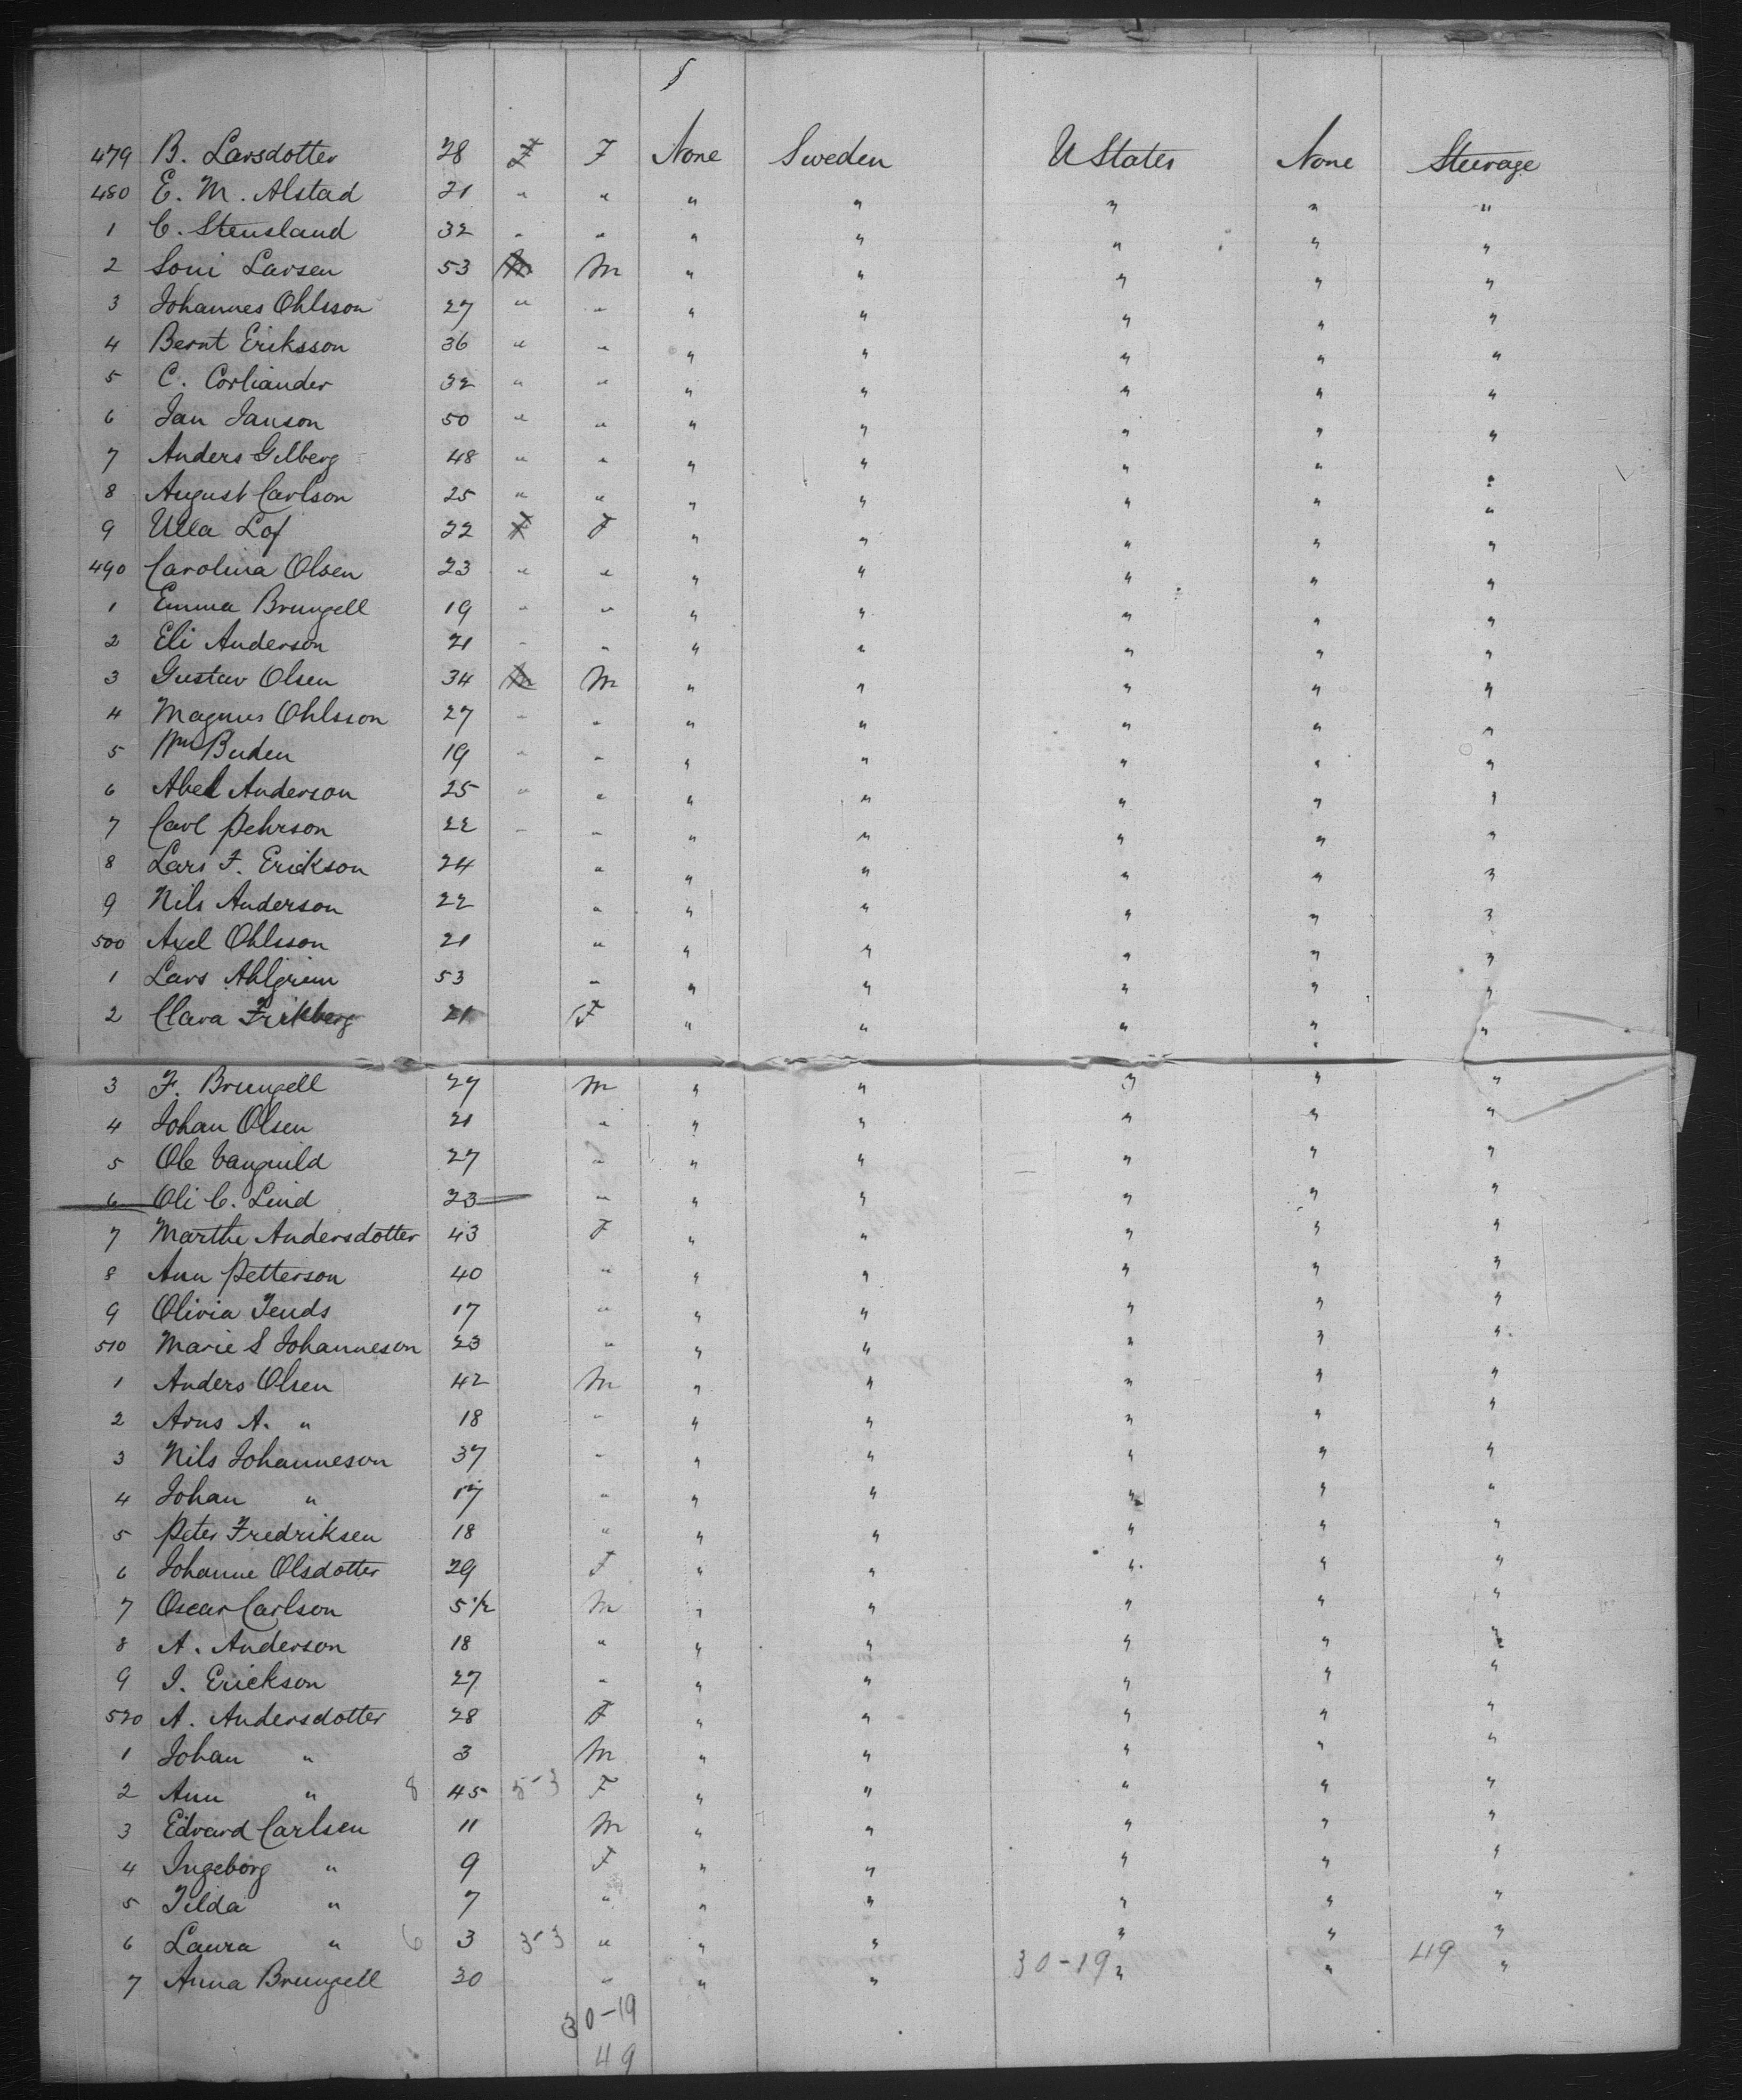 8
479 B. Larsdotter 28 F F None Sweden U States None Steerage
480 E. M. Alstad 21 " " " " " " "
1 C. Stensland 32 " " " " " " "
2 Soni Larsen 53 M M " " " " "
3 Johannes Ohlsson 27 " " " " " " "
4 Bernt Eriksson 36 " " " " " " "
5 C. Corliander 32 " " " " " " "
6 Jan Janson 50 " " " " " " "
7 Anders Gilberg 48 " " " " " " "
8 August Carlson 25 " " " " " " "
9 Ulla Lof 22 F F " " " " "
490 Carolina Olsen 23 " " " " " " "
1 Emma Brungell 19 " " " " " " "
2 Eli Anderson 21 " " " " " " "
3 Gustav Olsen 34 M M " " " " "
4 Magnus Ohlsson 27 " " " " " " "
5 Wm Buden 19 " " " " " " "
6 Abel Anderson 25 " " " " " " "
7 Carl Pehrson 22 " " " " " " "
8 Lars F. Erickson 24 " " " " " "
9 Nils Anderson 22 " " " " " "
500 Axel Ohlsson 21 " " " " " "
1 Lars Ahlgrim 53 " " " " " "
2 Clara Frikberg 21 F " " " " "
3 F. Brungell 27 M " " " " "
4 Johan Olsen 21 " " " " " "
5 Ole Vanguild 27 " " " " " "
6 Oli C. Lind 23 " " " " " "
7 Marthe Andersdotter 43 F " " " " "
8 Ann Petterson 40 " " " " " "
9 Olivia Jends 17 " " " " " "
510 Marie S Johanneson 23 " " " " " "
1 Anders Olsen 42 M " " " " "
2 Arns A. " 18 " " " " " "
3 Nils Johanneson 37 " " " " " "
4 Johan " 17 " " " " " "
5 Peter Fredriksen 18 " " " " " "
6 Johanne Olsdotter 29 F " " " " "
7 Oscar Carlson 5 1/2 M " " " " "
8 A. Anderson 18 " " " " " "
9 I. Erickson 27 " " " " " "
520 A. Andersdotter 28 F " " " " "
1 Johan " 3 M " " " " "
2 Ann " 8 45 5-3 F " " " " "
3 Edvard Carlsen 11 M " " " " "
4 Ingeborg " 9 F " " " " "
5 Tilda " 7 " " " " " "
6 Laura " 6 3 3-3 " " " " " "
7 Anna Brungell 30 " " " 30-19 " " 49 "
30-19
49